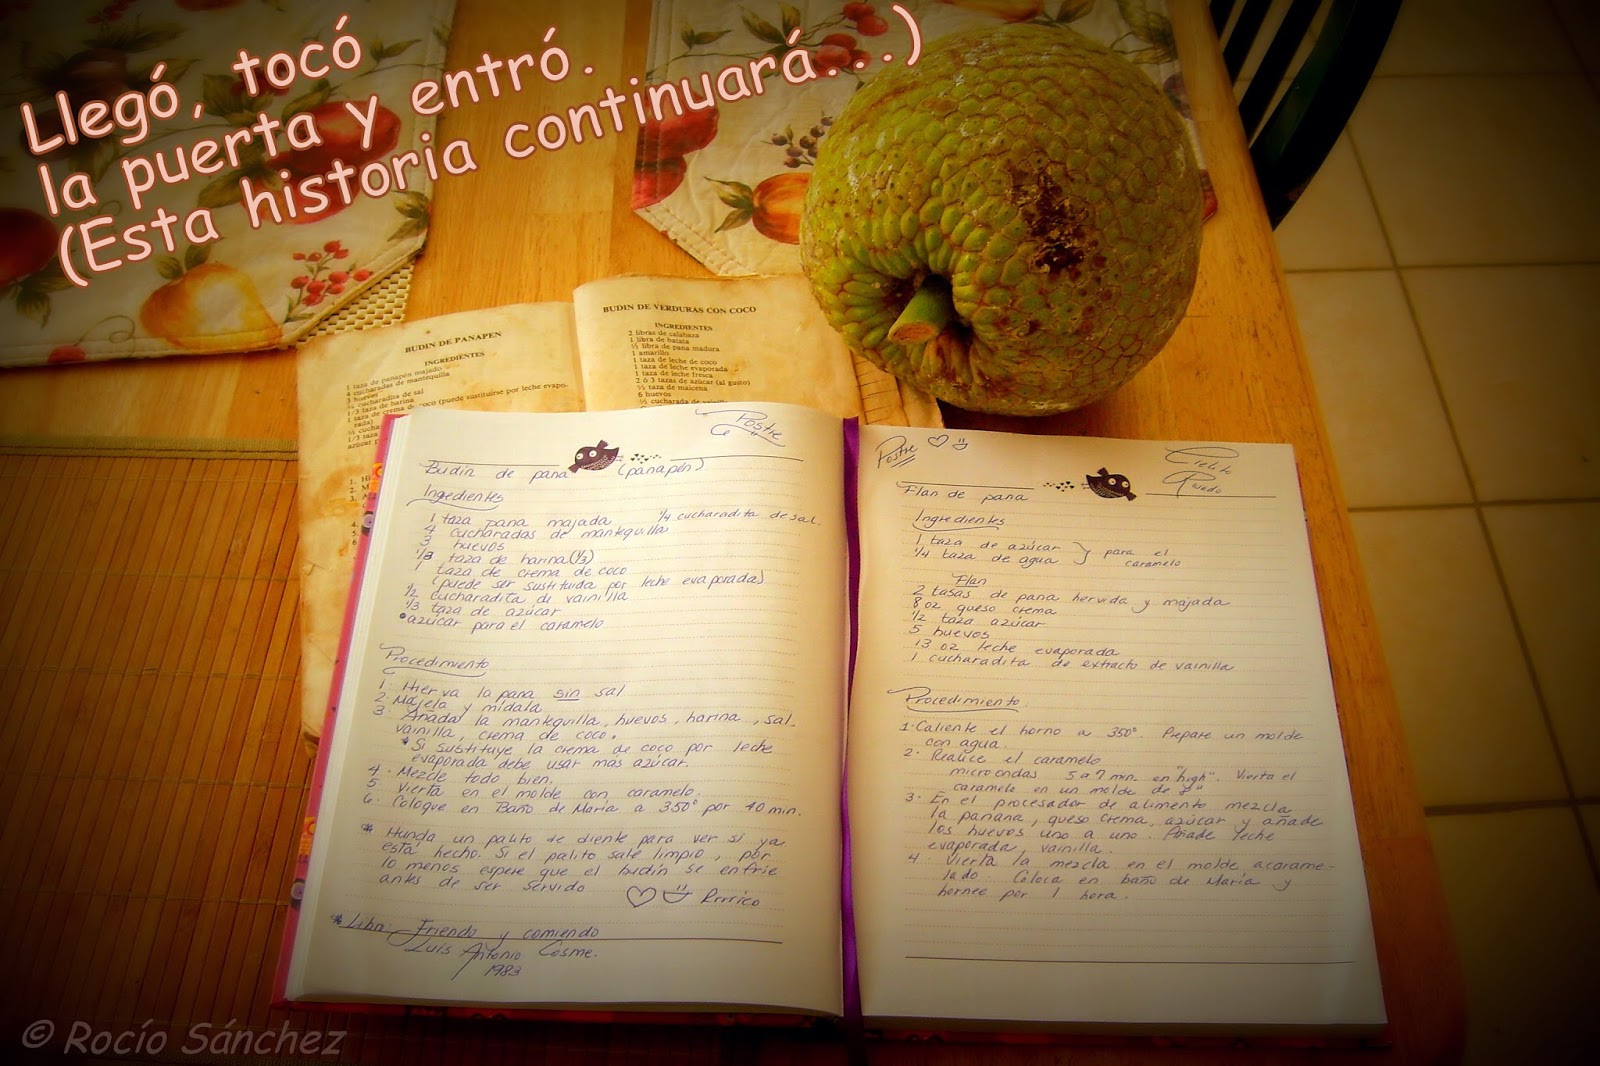 Llegó, tocó
la puerta y entró.
(Esta historia continuará...)
BUDIN DE PANAPEN
INGREDIENTES
1 taza de panapén majado
4 cucharadas de mantequilla
3 huevos
cucharadita de sal
1/3 taza de harina
1 taza de crema de coco (puede sustituirse por leche evapo-
rada)
BUDIN DE VERDURAS CON COCO
INGREDIENTES
2 libras de calabaza
1 libra de batata
½ libra de pana madura
1 amarillo
1 taza de leche de coco
1 taza de leche evaporada
1 taza de leche fresca
2 ó 3 tazas de azúcar (al gusto)
½ taza de maicena
6 huevos
½ cucharada de
Postre
Budin de pana (panapén)
Ingredientes
1 taza pana majada 1/4 cucharadita de sal.
4 cucharadas de mantequilla
3 huevos
1/3 taza de harina (1/3)
1 taza de crema de coco
(puede ser sustituida por leche evaporada)
1/2 cucharadita de vainilla
1/3 taza de azúcar
•azúcar para el caramelo
Procedimiento
1. Hierva la pana sin sal
2. Májela y mídala
3. Añada la mantequilla, huevos, harina, sal,
vainilla, crema de coco.
* Si sustituye la crema de coco por leche
evaporada debe usar más azúcar.
4. Mezcle todo bien.
5. Vierta en el molde con caramelo.
6. Coloque en Baño de María a 350° por 40 min.
* Hunda un palito de diente para ver si ya
está hecho. Si el palito sale limpio, por
lo menos espere que el budín se enfríe
antes de ser servido
Rrrrico
* Libro: Friendo y comiendo
Luis Antonio Cosme.
1983
Postre
Cielito
Rosado
Flan de pana
Ingredientes
1 taza de azúcar } para el
1/4 taza de agua caramelo
Flan
2 tasas de pana hervida y majada
8 oz queso crema
1/2 taza azúcar
5 huevos
13 oz leche evaporada
1 cucharadita de extracto de vainilla
Procedimiento:
1. Caliente el horno a 350°. Prepare un molde
con agua.
2. Realice el caramelo
microondas 5 a 7 min. en "high". Vierta el
caramelo en un molde de 8"
3. En el procesador de alimento mezcla
la panana, queso crema, azúcar y añade
los huevos uno a uno. Añade leche
evaporada, vainilla.
4. Vierta la mezcla en el molde acarame-
lado. Coloca en baño de María y
hornee por 1 hora.
© Rocío Sánchez